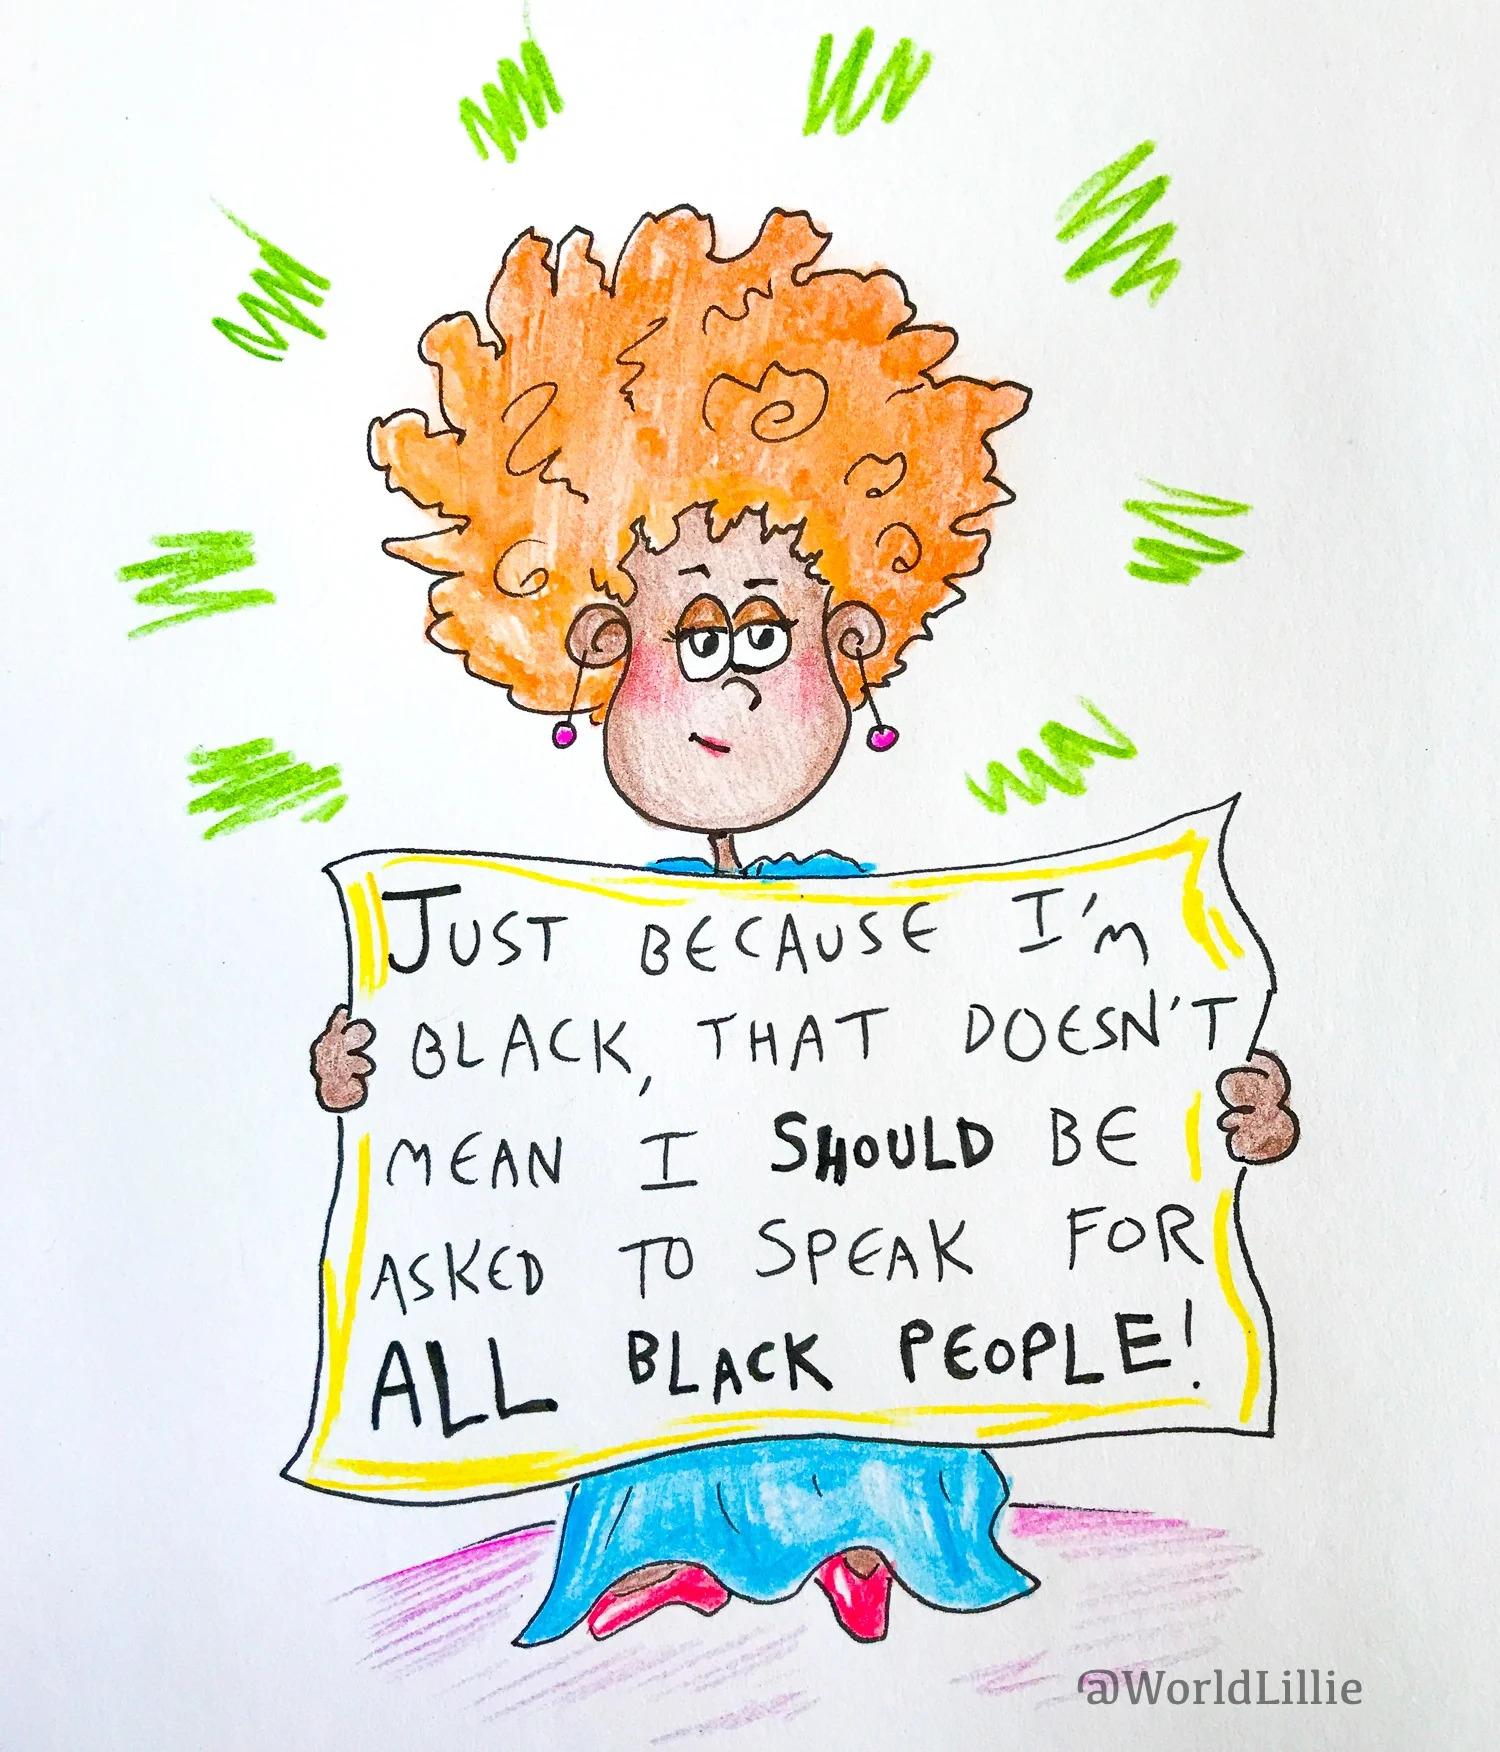 JUST BECAUSE I'M
BLACK, THAT DOESN'T
MEAN I SHOULD BE
ASKED TO SPEAK FOR
ALL BLACK PEOPLE!
@WorldLillie